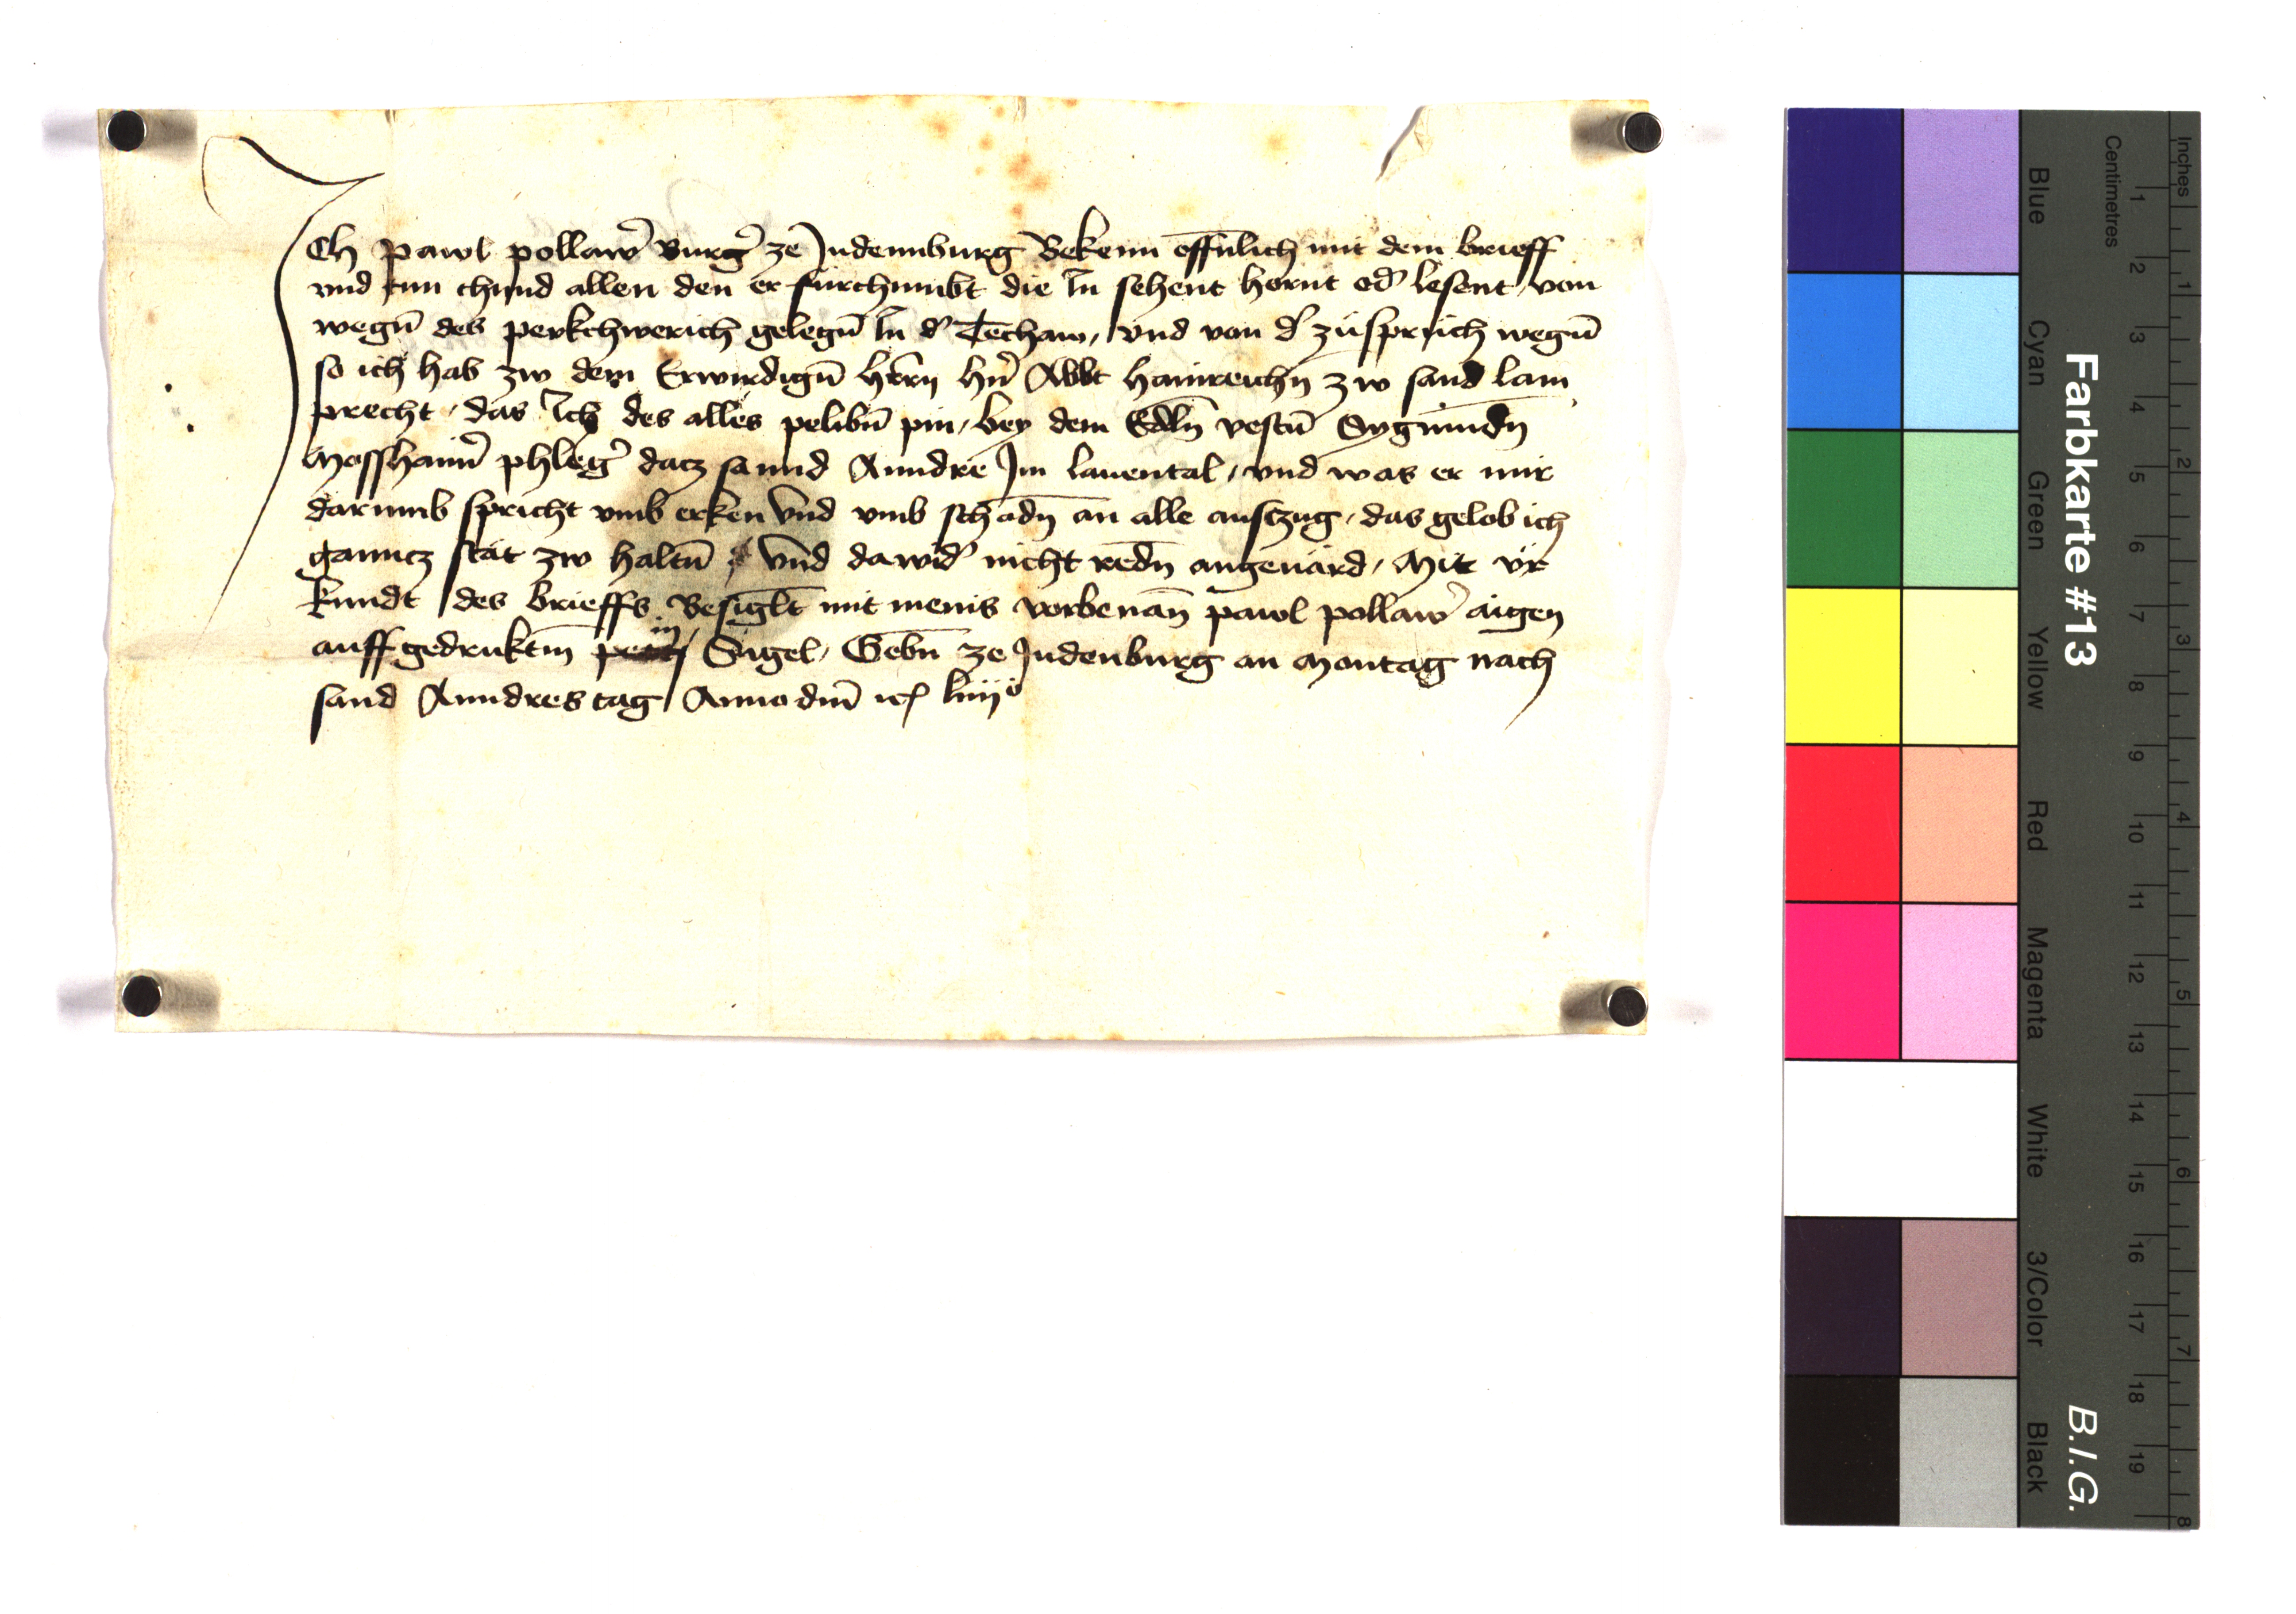 Ich pawl pollaw̉ Burg̉ ze Judennburg Bekenn offn̄lich mit dem brieff
vnd tun chund allen den er fürchumbt die In sehent hornt od̉ lesent / von
wegn̄ des perkchwerich gelegn̄ In d̉ Techaw / vnd von d̉ züsprüch wegn̄
so ich hab zw dem Erwirdign̄ hērn hn̉ Abbt hainreichn zw sand lam
precht / das Ich des alles pelibn̄ pin / bey dem Edln̄ vestn̄ Sygmundn̄
Mosshaim̉ phleg̉ datz sannd Anndre Im lauental / vnd was er mir
darumb spricht vmb erken vnd vmb schadn̄ an alle ausczug / das gelob ich
ganncz stät zw haltn̄ / vnd dawid̉ nicht redn̄ angeuärd / Mit vr
kundt des brieffs Besiglt̄ mit menis vorbenan̄ pawl pollaw̉ aigen
auff gedruktm̄ Sigel / Gebn̄ ze Judenburg an Montag nach
sand Anndres tag Anno dm̄ ꝛc liiijo
Farbkarte #13
B.I.G.
Centimetres
Inches
Blue
Cyan
Green
Yellow
Red
Magenta
White
3/Color
Black
1 2 3 4 5 6 7 8 9 10 11 12 13 14 15 16 17 18 19
1 2 3 4 5 6 7 8